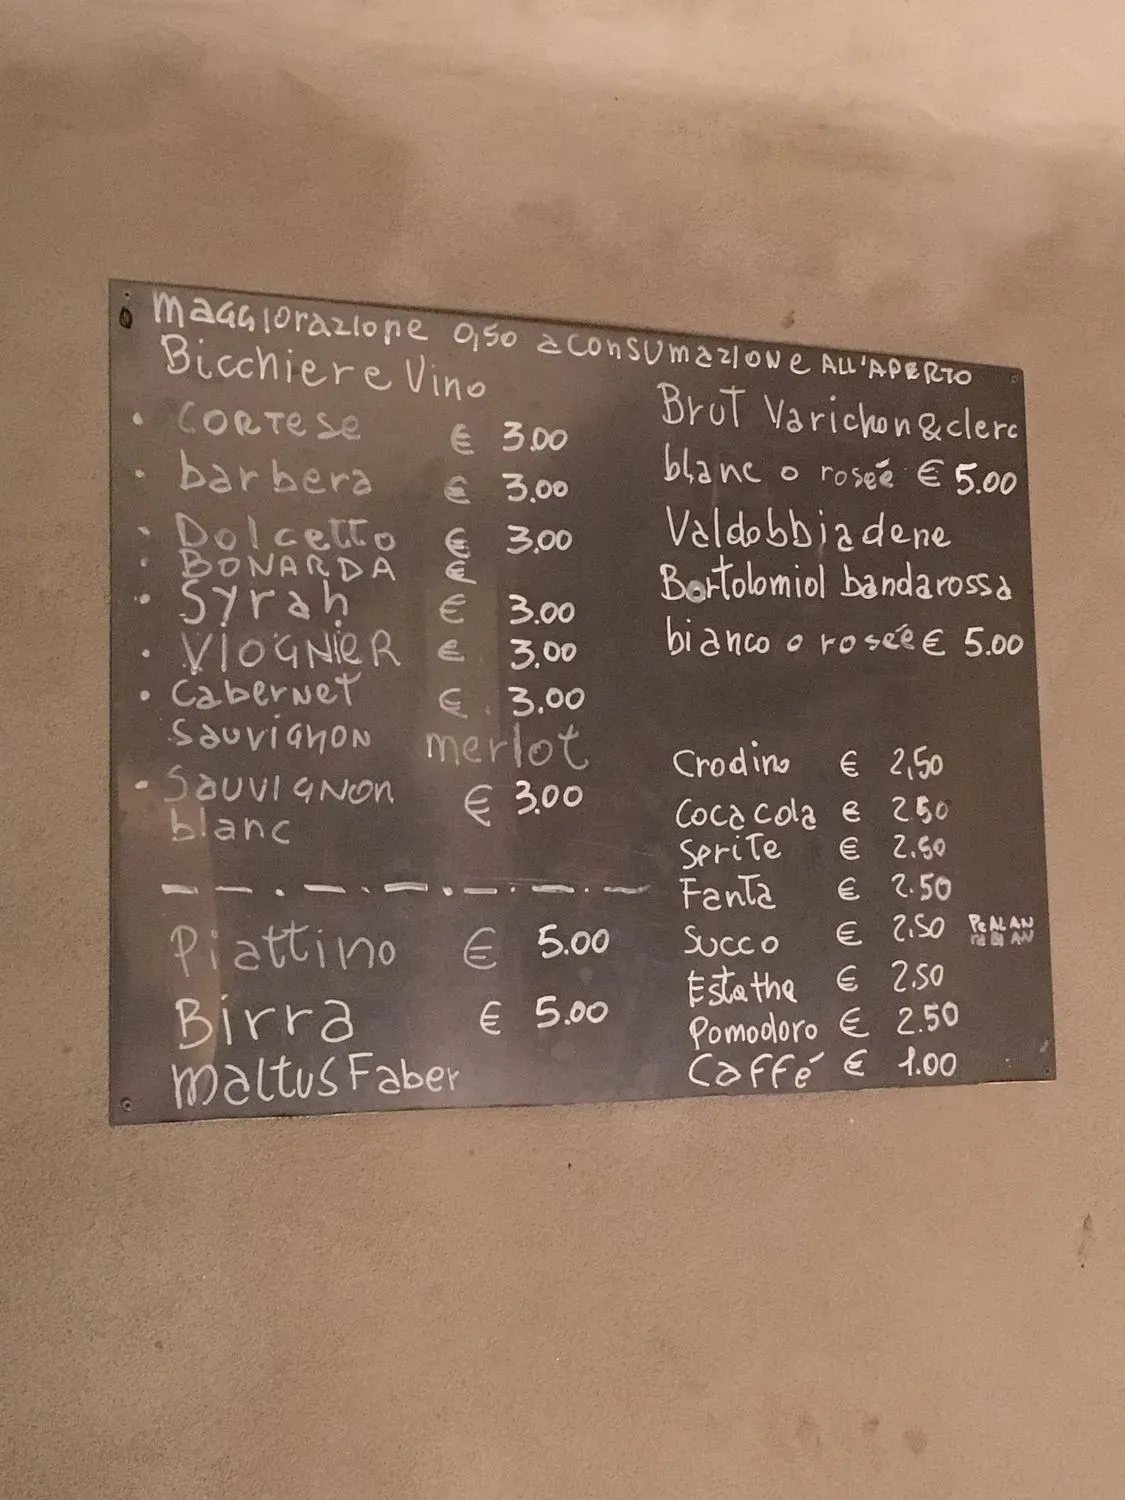 maggiorazione 0,50 a consumazione ALL'APERTO
Bicchiere Vino
• CORTESE € 3.00
• barbera € 3.00
• Dolcetto € 3.00
• BONARDA €
• Syrah € 3.00
• VIOGNIER € 3.00
• Cabernet € 3.00
Sauvignon merlot
• Sauvignon € 3.00
blanc
Piattino € 5.00
Birra € 5.00
maltus Faber
Brut Varichon & clerc
blanc o roseé € 5.00
Valdobbiadene
Bortolomiol bandarossa
bianco o roseé € 5.00
Crodino € 2,50
Coca cola € 2.50
Sprite € 2.50
Fanta € 2.50
Succo € 2.50
Estathe € 2.50
Pomodoro € 2.50
Caffé € 1.00